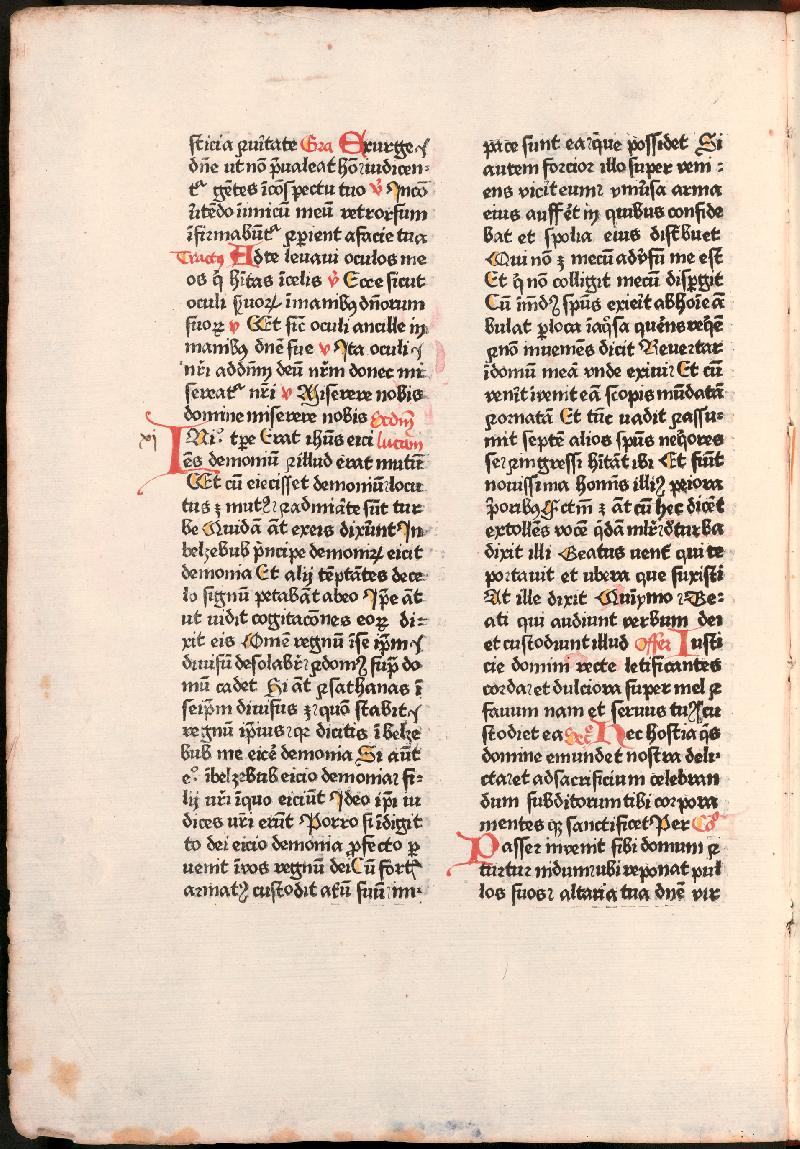 sticia ⁊ u͛itate Gra Exurge
dn̄e ut nō p̄ualeat hō⁊ iudicen-
tᵉ gētes ī cōspectu tuo v̊ Incō
u͛tēdo inimicū meū retrorsum
īfirmabūtᵉ ⁊ ꝑient a facie tua
Tractꝰ Ad te levavi oculos me
os q̇ hītas ī celis v̊ Ecce sicut
oculi ẜuoꝝ ī manibꝫ dn̄orum
suoꝝ v Et sic̄ oculi ancille in
manibꝫ dn̄e sue v Ita oculi
nr̄i ad dn̄m deū nr̄m donec mi
sereatᵉ nr̄i v Miserere nobis
domine miserere nobis Ecdm̄
xi IN i⁰. tp̄e Erat ih̄us eici lucam
ēs demoniū ⁊ illud erat mutū
Et cū eiecisset demoniū⁊ locu
tus ꝫ mutꝰ ⁊ admiāte sūt tur
be Quidā āt ex eis dixe͛unt In
belzebub p̄ncipe demonioꝝ eicit
demonia Et alij tēptātes de ce
lo signū petabāt ab eo Ip̄e āt
ut vidit cogitacōnes eoꝝ di-
xit eis Omē regnū ī se ip̄m
divisū desolabi͛t ⁊ domꝰ sup̄ do
mū cadet Si āt ⁊ sathanas ī
seip̄m divisus ꝫ quō stabit
regnū ip̄ius⁊ qꝛ dicitis ī belze
bub me eice͛ demonia Si aūt
e⁰. ī belzebub eicio demonia⁊ fi-
lij vr̄i ī quo eiciūt Ideo ip̄i iu
dices vr̄i erūt Porro si ī digit
to dei eicio demonia ꝓfecto ꝑ
venit ī vos regnū dei Cū fortꝭ
armatꝰ custodit at͛ū suū⁊ in-
pace sunt ea⁊ que possidet Si
autem forcior illo super veni-
ens vicit eum⁊ vniv͛sa arma
eius auffe͛t in quibus confide
bat et spolia eius dist͛buet
Qui nō ꝫ mecū adv͛sū me est
Et q̇ nō colligit mecū disꝑgit
Cū īmdꝰ spūs exieit ab hoīe ā
bulat ꝑ loca īaq̇sa que͛ns reqͥē
⁊ nō inveniēs dicit Revertar
ī domū meā vnde exivi⁊ Et cū
ven͛it īvenit eā scopis mūdatā
⁊ ornatā Et tūc vadit ⁊ assu-
mit septē alios spūs neq̇ores
se⁊ ⁊ ingressi hītāt ibi Et fiūt
novissima hominis illiꝰ peiora
p͛oribꝫ Fctm̄ ꝫ āt cū hec dice͛t
extollēs vocē q̄dā mlr̄ d̄ turba
dixit illi Beatus vent͛ qui te
portavit et ubera que suxisti
At ille dixit Quīymo ⁊ Be-
ati qui audiunt verbum dei
et custodiunt illud Offer Iusti
cie domini recte letificantes
corda⁊ et dulciora super mel ⁊
favum nam et servus tuꝰ⁊ cu
stodiet ea Sec̄ Hec hostia q̄s
domine emundet nostra deli-
cta⁊ et ad sacrificium celebran
dum subditorum tibi corpora
mentes qꝫ sanctificet Per Cō
Passer invenit sibi domum ⁊
turtur nidum⁊ ubi reponat pul
los suos⁊ altaria tua dn̄e vir